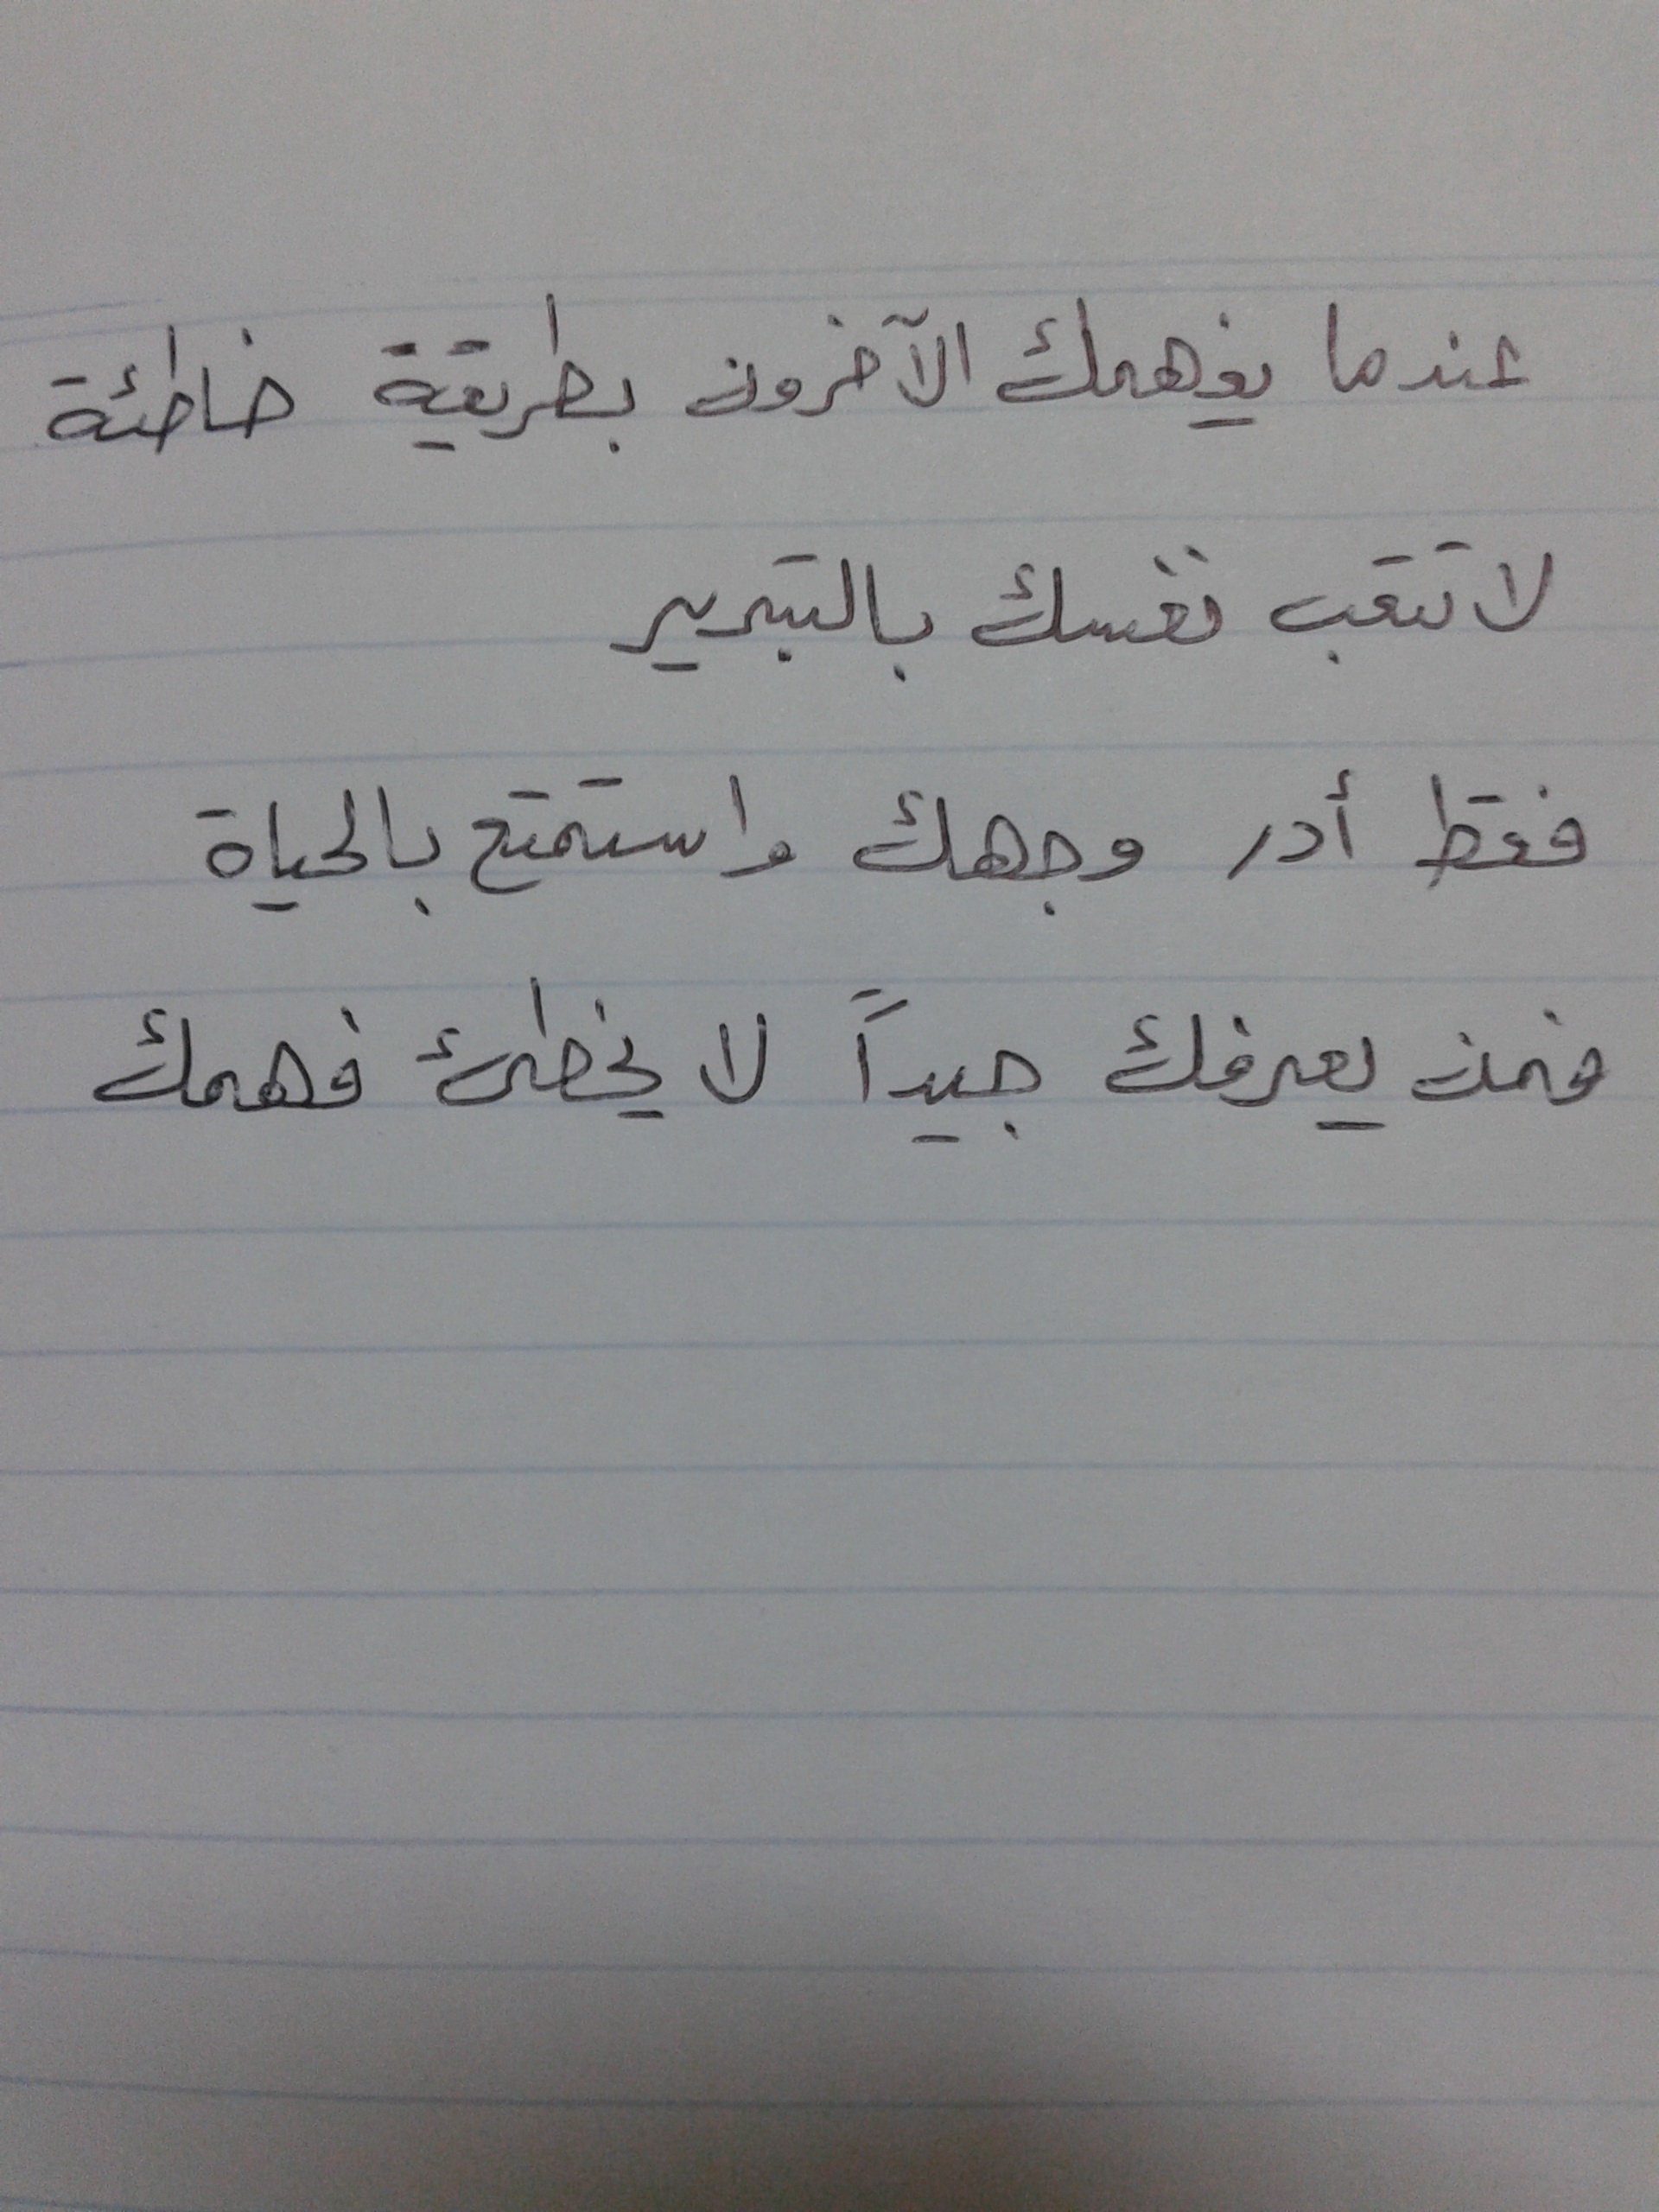 عندما يفهمك الآخرون بطريقة خاطئة
لا تتعب نفسك بالتبرير
فقط أدر وجهك واستمتع بالحياة
فمن يعرفك جيداً لا يخطئ فهمك